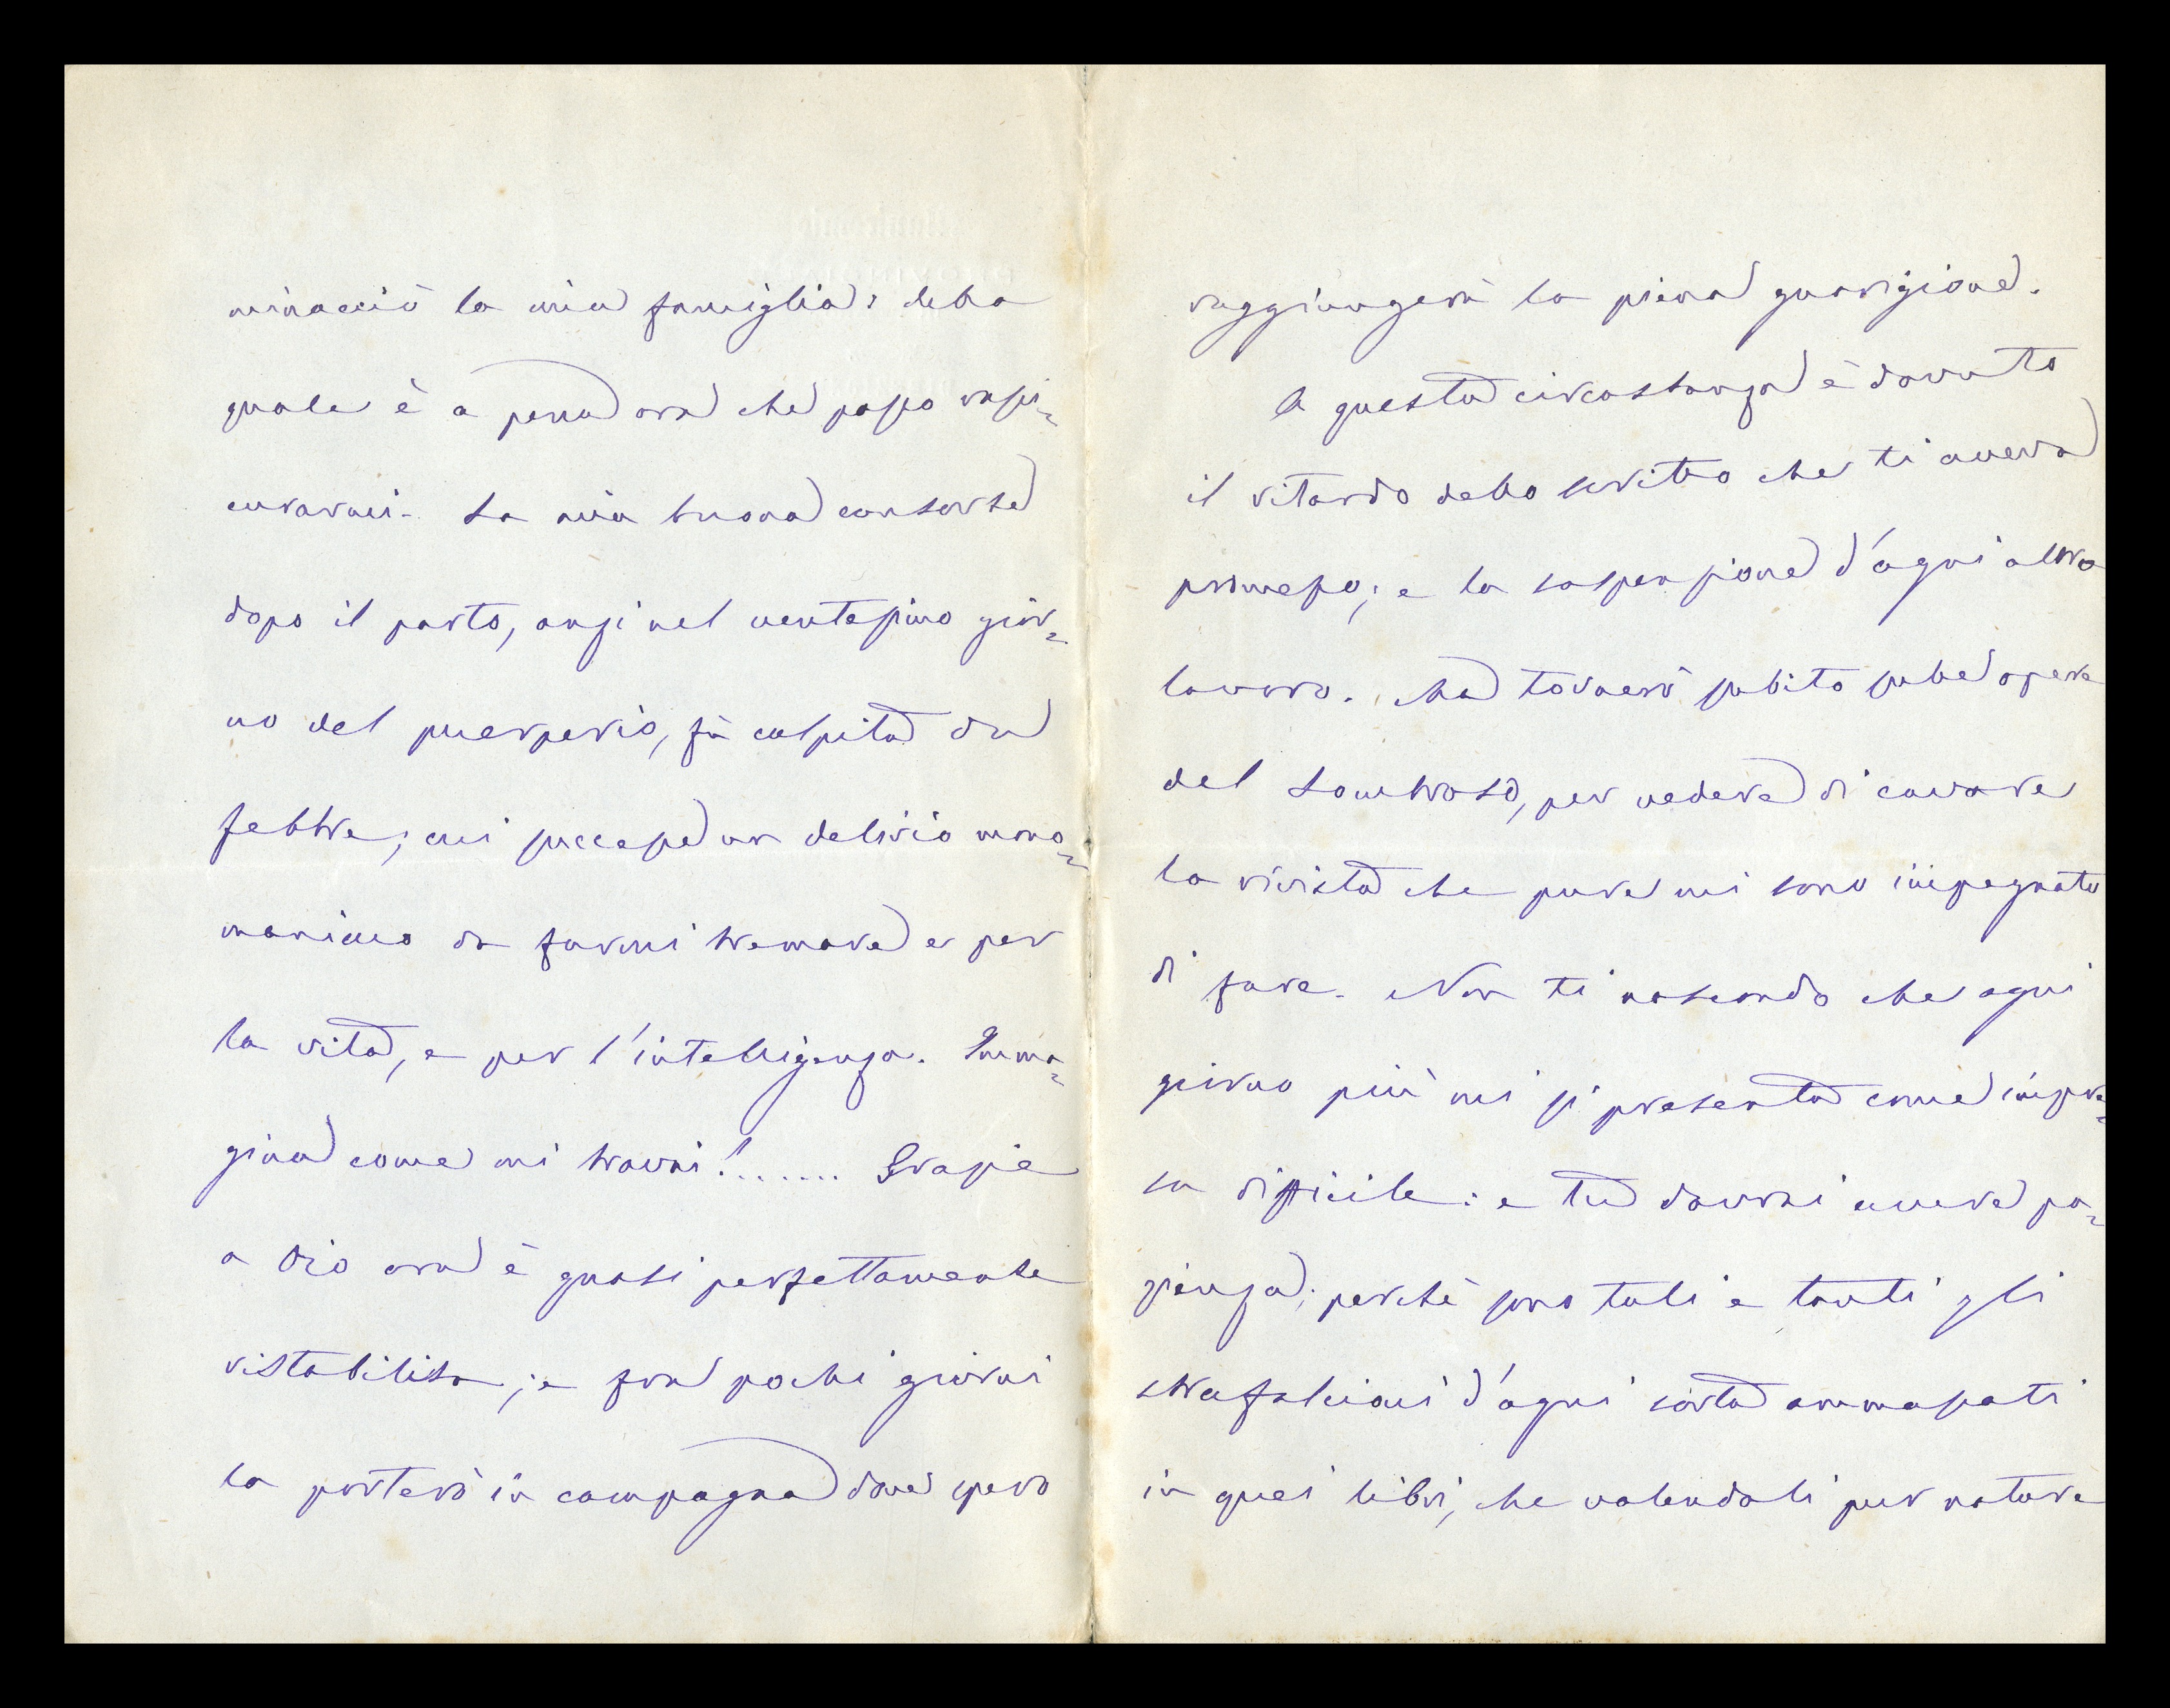 minacciò la mia famiglia: della
quale è a pena ora che posso rassi=
curarmi. La mia buona consorte
dopo il parto, anzi nel ventesimo gior=
no del puerperio, fù colpita da
febbre; cui successe un delirio mono=
maniaco da farmi tremare e per
la vita, e per l'intelligenza. Imma=
gina come mi trovai!....... Grazie
a Dio ora è quasi perfettamente
ristabilita; e fra pochi giorni
la porterò in campagna dove spero
raggiungerà la piena guarigione.
A questa circostanza è dovuto
il ritardo dello scritto che ti aveva
promesso; e la sospensione d'ogni altro
lavoro. Ma tornerò subito sulle opere
del Lombroso, per vedere di cavare
la rivista che pure mi sono impegnato
di fare. Non ti nascondo che ogni
giorno più mi si presenta come impre=
sa difficile: e tu dovrai avere pa=
zienza; perchè sono tali e tanti gli
strafalcioni d'ogni sorta ammassati
in quei libri, che volendoli pur notare